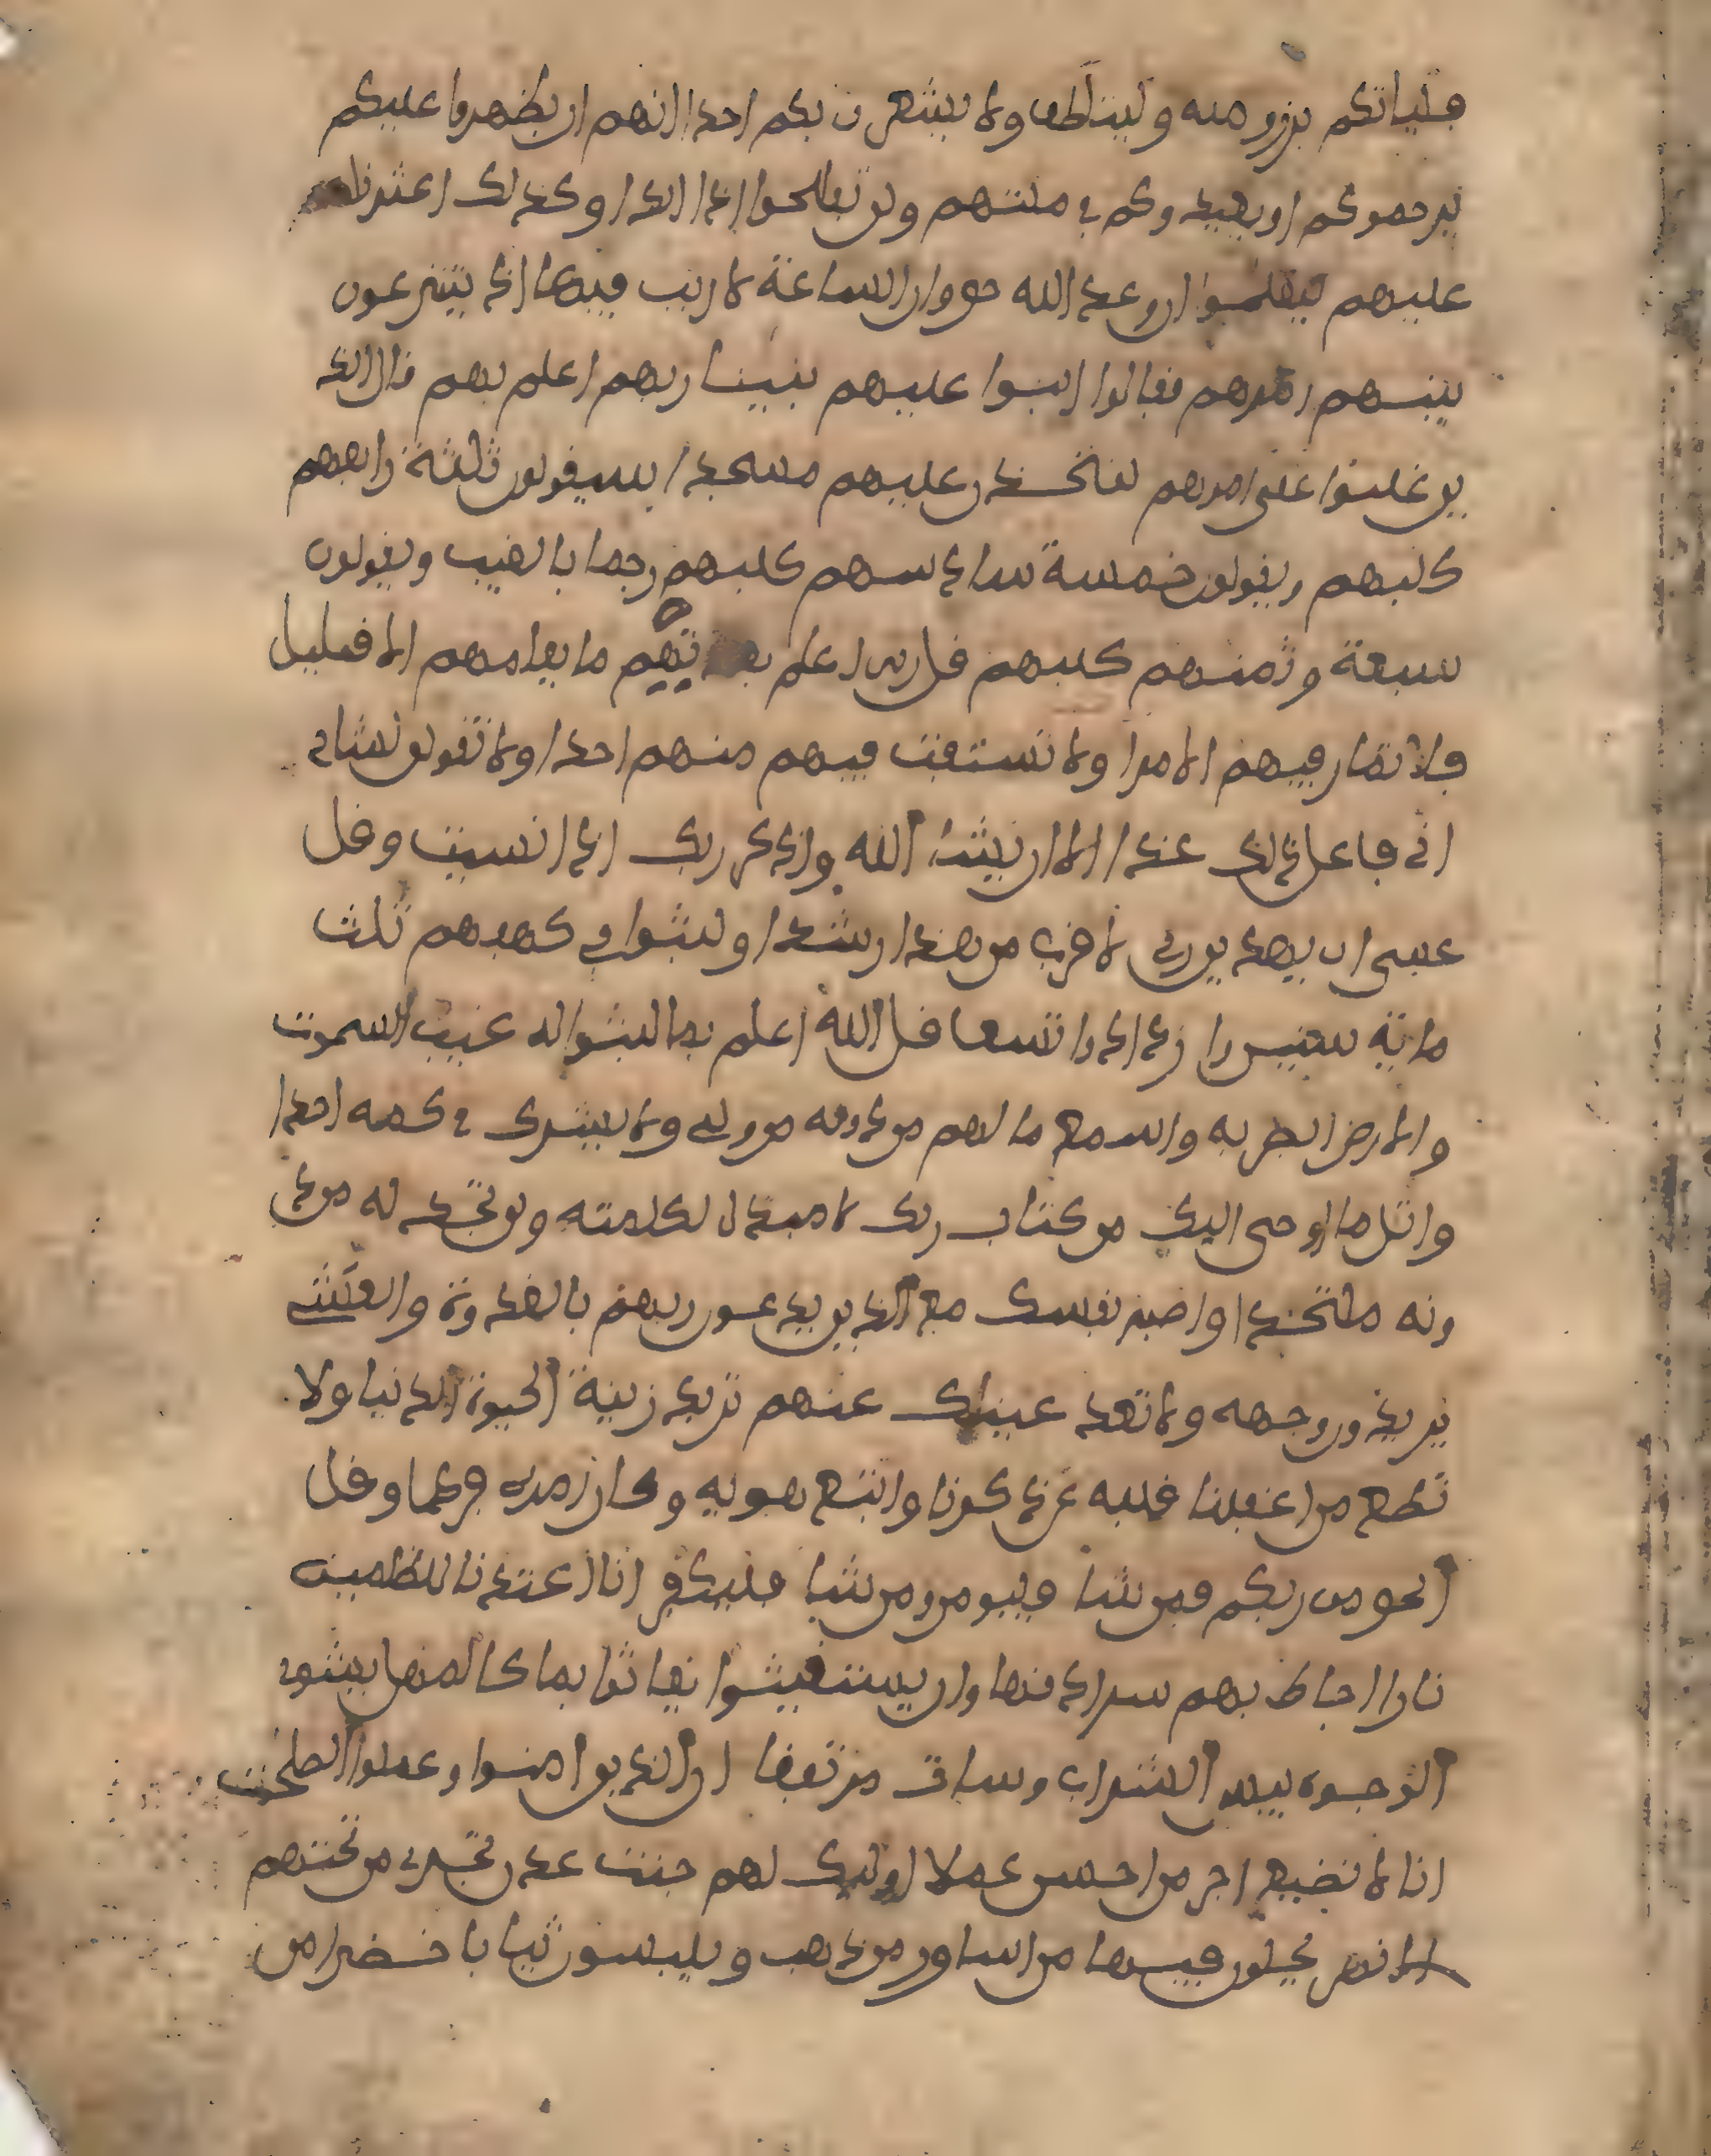 فلياتكم برزو منه وليتلطف ولا يشعرن بكم احدا انهم ان يظهروا عليكم
يرجموكم او يعيدوكم في ملتهم ولن تفلحوا اذا ابدا وكذلك اعثرنا
عليهم ليعلموا ان وعد الله حق وان الساعة لا ريب فيها اذ يتنزعون
بينهم امرهم فقالوا ابنوا عليهم بنينا ربهم اعلم بهم قال الذ
ين غلبوا على امرهم لنتخذن عليهم مسجدا سيقولون ثلثة رابعهم
كلبهم ويقولون خمسة سادسهم كلبهم رجما بالغيب ويقولون
سبعة وثمنهم كلبهم قل ربي اعلم بعدتهم ما يعلمهم الا قليل
فلا تمار فيهم الا مرا ولا تستفت فيهم منهم احدا ولا تقولن لشاي
اني فاعل ذلك غدا الا ان يشا الله واذكر ربك اذا نسيت وقل
عسى ان يهدين ربي لا قرب من هذا رشدا ولبثوا في كهفهم ثلث
ماية سنين وازدادوا تسعا قل الله اعلم بما لبثوا له غيب السموت
والارض ابصر به واسمع ما لهم من دونه من ولي ولا يشرك في حكمه احدا
واتل ما اوحي اليك من كتاب ربك لا مبدل لكلمته ولن تجد له من د
ونه ملتحدا واصبر نفسك مع الذين يدعون ربهم بالغدوة والعشي
يريدون وجهه ولا تعد عينك عنهم تريد زينة الحيوة الدنيا ولا
تطع من اغفلنا قلبه عن ذكرنا واتبع هويه وكان امره فرطا وقل
الحق من ربكم فمن شا فليومن ومن شا فليكفر انا اعتدنا للظلمين
نارا احاط بهم سرادقها وان يستغيثوا يغاثوا بما كالمهل يشوي
الوجوه بيس الشراب وسات مرتفقا ان الذين امنوا وعملوا الصلحت
انا لا نضيع اجر من احسن عملا اوليك لهم جنت عدن تجري من تحتهم
الانهر يحلون فيها من اساور من ذهب ويلبسون ثيابا خضرا من